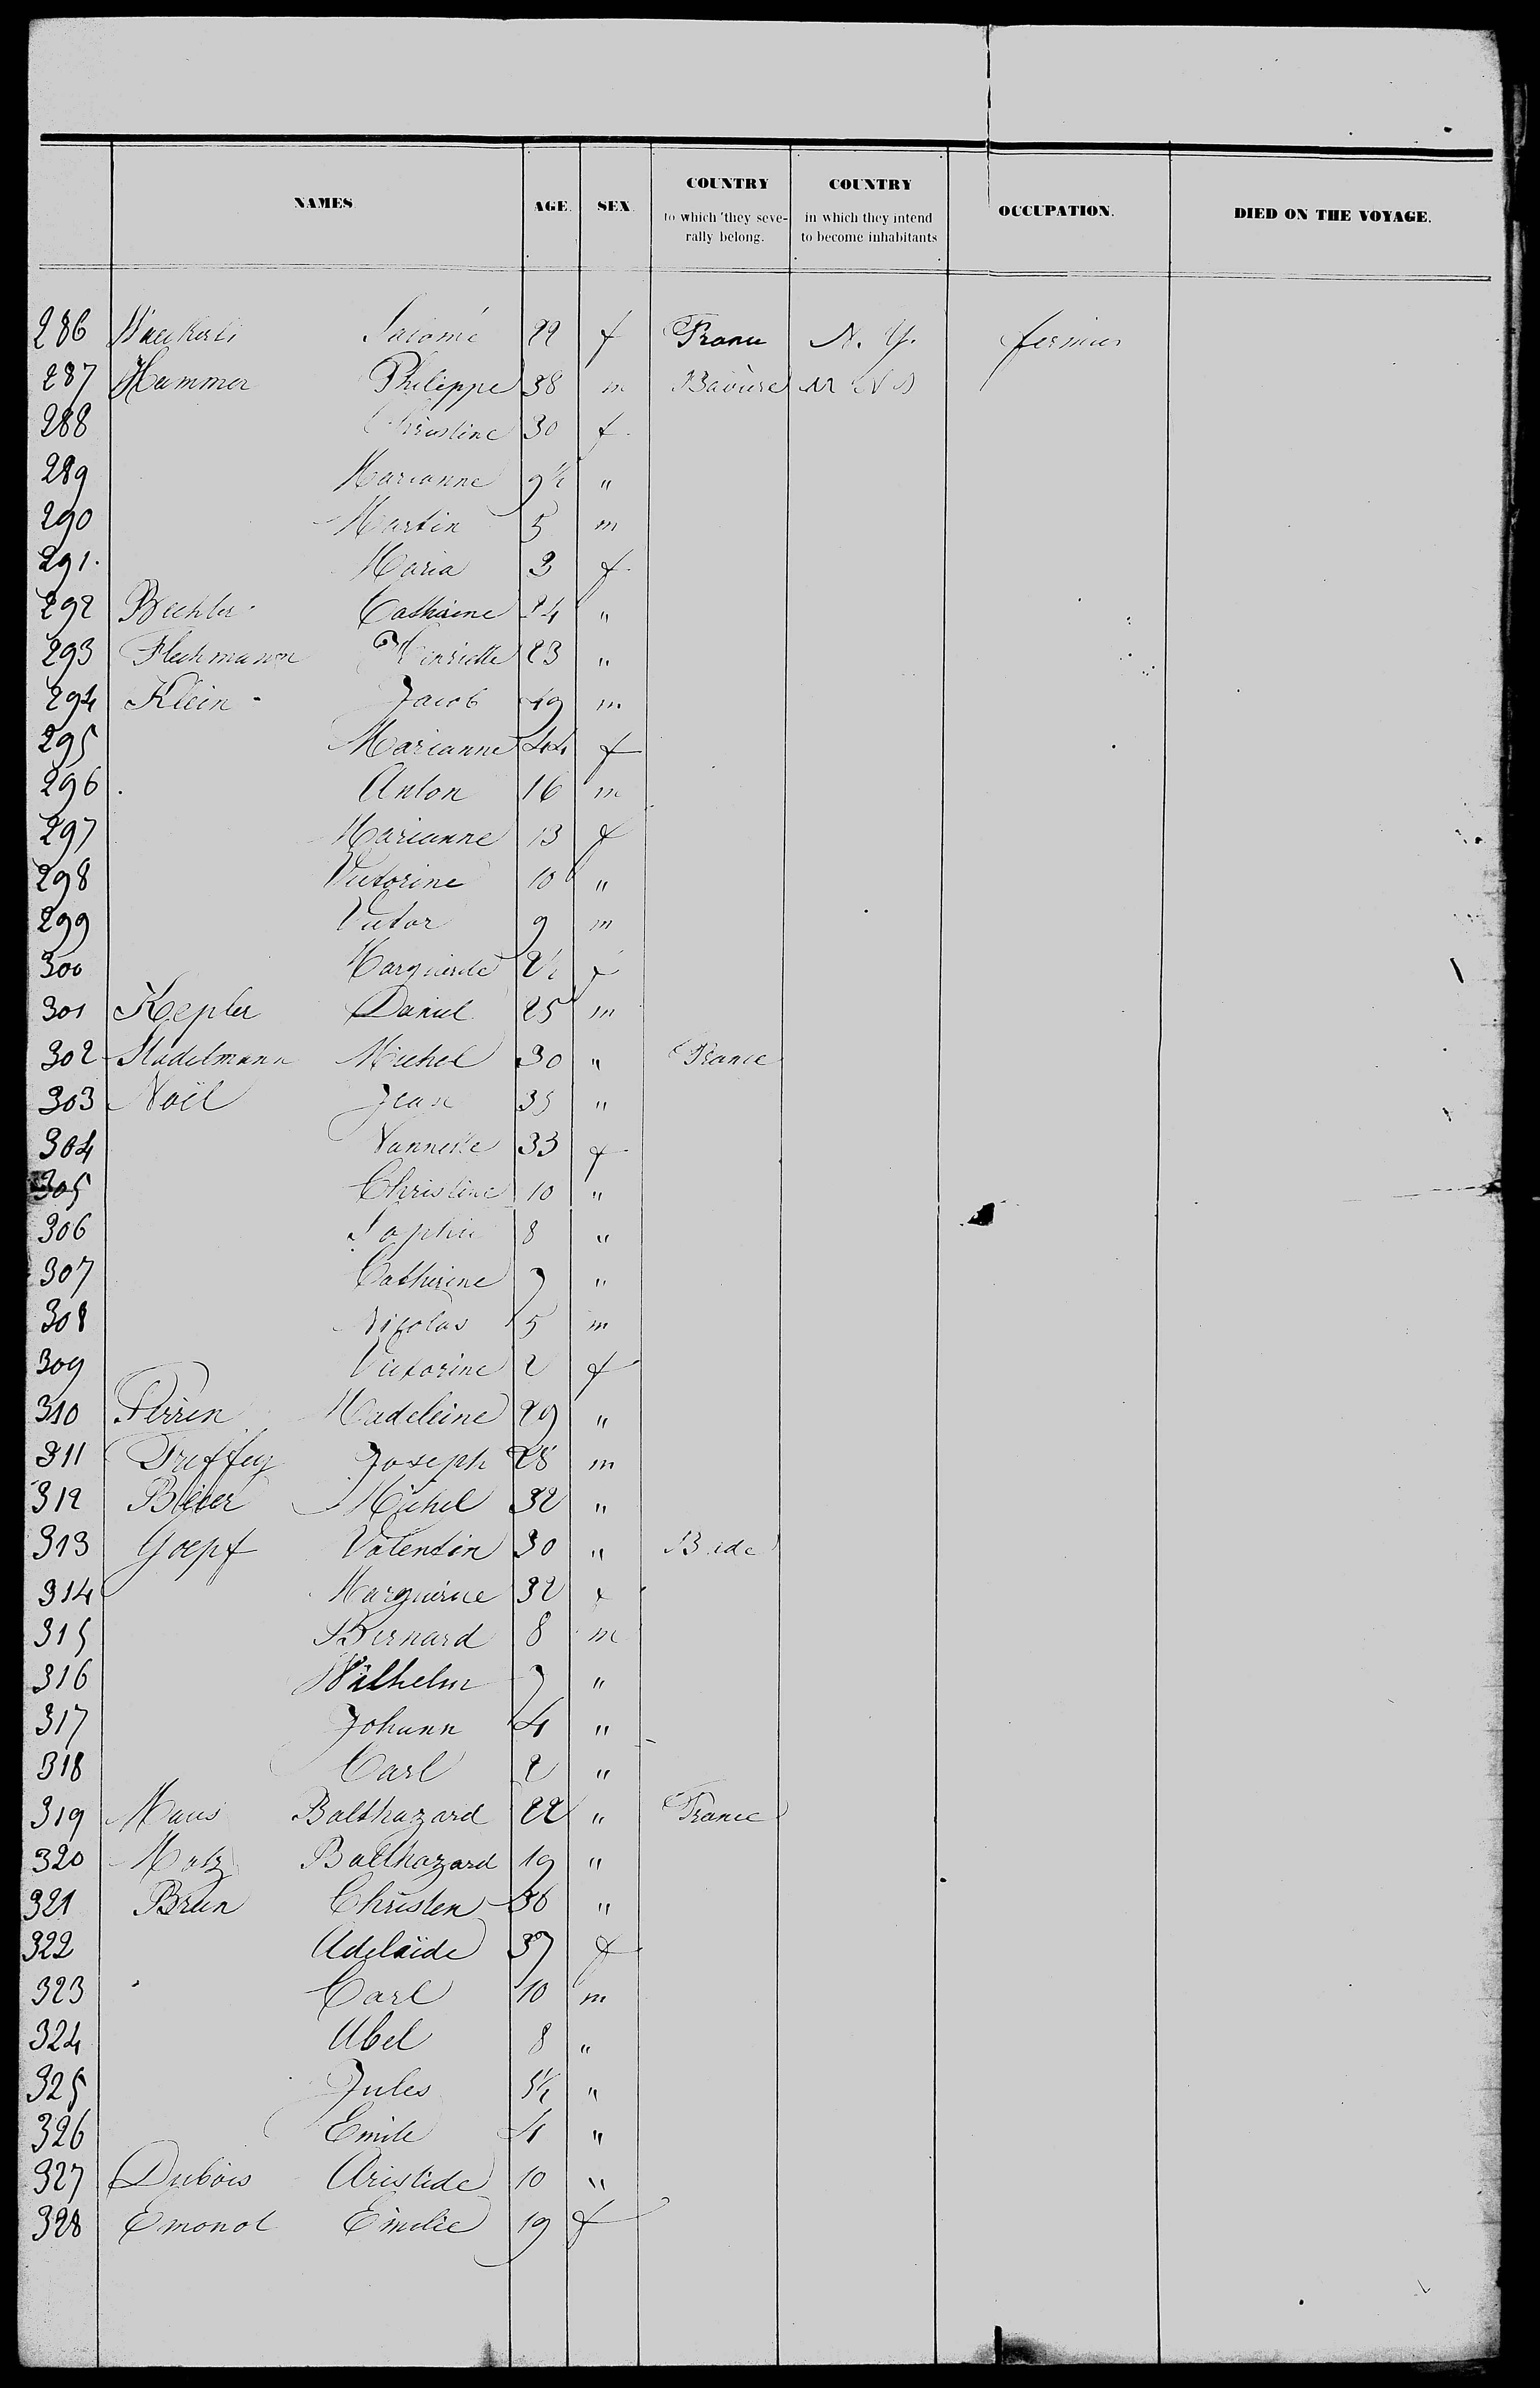 NAMES AGE. SEX. COUNTRY to which they seve-rally belong. COUNTRY in which they intend to become inhabitants OCCUPATION. DIED ON THE VOYAGE.
286 Salomé 22 f France N. Y. fermier
287 Hammer Philippe 38 m Bavière
288 Christine 30 f
289 Marianne 9½ "
290 Martin 5 m
291. Maria 3 f
292 Bechler Catherine 24 "
293 Flechmann Henriette 23 "
294 Klein - Jacob 49 m
295 Marianne 44 f
296 Anton 16 m
297 Marianne 13 f
298 Victorine 10 "
299 Victor 9 m
300 Marguerite 2½ f
301 Kepler Daniel 25 m
302 Stadelmann Michel 30 " France
303 Noël Jean 35 "
304 Nannette 33 f
305 Christine 10 "
306 Sophie 8 "
307 Catherine 7 "
308 Nicolas 5 m
309 Victorine 2 f
310 Perrin Madeleine 29 "
311 Treffey Joseph 28 m
312 Michel 32 "
313 Goepf Valentin 30 " Bade
314 Marguerite 32 f
315 Bernard 8 m
316 Wilhelm 7 "
317 Johann 4 "
318 Carl 2 "
319 Maus Balthazard 22 " France
320 Motz Balthazard 19 "
321 Brun Christen 36 "
322 Adelaïde 37 f
323 Carl 10 m
324 Abel 8 "
325 Jules 5½ "
326 Emile 4 "
327 Dubois Aristide 10 "
328 Emonot Emilie 19 f